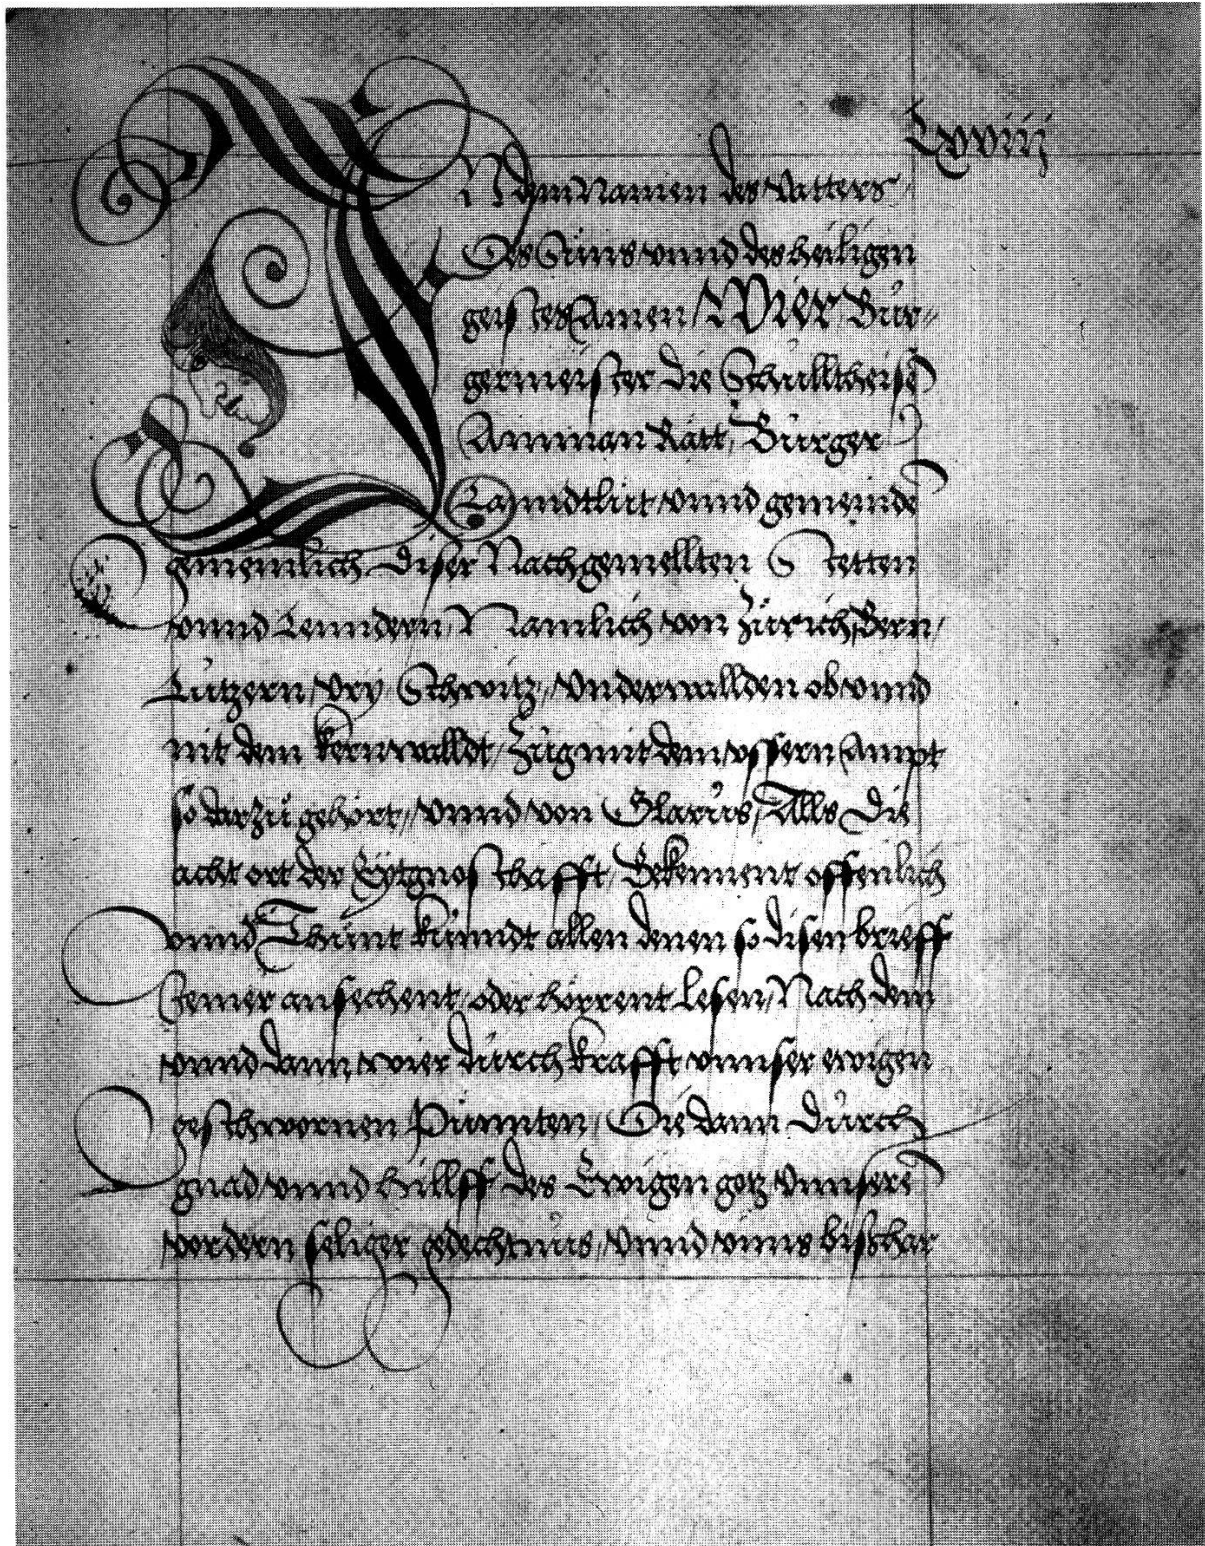 Lxviij
IN dem Namen des Vatters /
Des Súns vnnd des heiligen
geistes Amen / Wier Búr„
germeister die Schúlltheise
Amman Rätt, Búrger
Lanndtlüt vnnd gemeinde
gemeinlich diser Nachgemellten Stetten
vnnd Lenndern, Namlich von Zürich, Bern,
Lútzern, Vry, Schwitz, Vnderwallden ob vnnd
nit dem kernwalldt, Zúg mit dem vssern Ampt
so darzú gehört, vnnd von Glarús, Alls Die
acht ort der Eÿtgnosschafft, Bekennent offenlich
vnnd Thúnt kúnndt allen denen so disen brieff
Jemer ansechent, oder hörrent lesen, Nach dem
vnnd dann wier dúrch krafft vnnser ewigen
geschwornen Pünnten, Die dann dúrch
gnad vnnd hillff des Ewigen gotz vnnsere
vordern seliger gedechtnús, vnnd vnns bishar